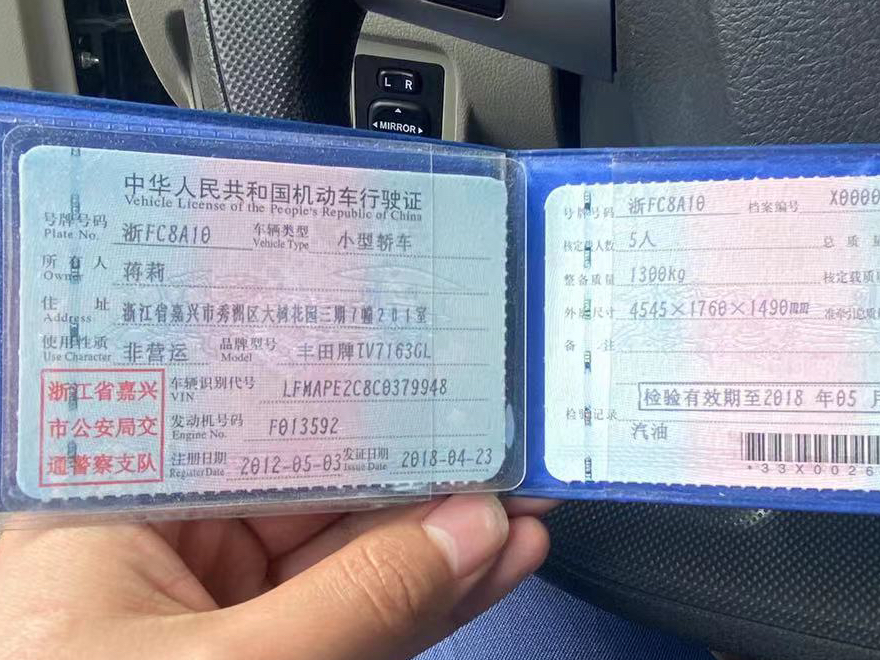 L R
MIRROR
中华人民共和国机动车行驶证
Vehicle License of the People's Republic of China
号牌号码 浙FC8A10 车辆类型 小型轿车
Plate No. Vehicle Type
所有人 蒋莉
Owner
住址 浙江省嘉兴市秀洲区大树花园三期7幢201室
Address
使用性质 非营运 品牌型号 丰田牌TV7163GL
Use Character Model
浙江省嘉兴
市公安局交
通警察支队
车辆识别代号 LFMAPE2C8C0379948
VIN
发动机号码 F013592
Engine No.
注册日期 2012-05-03 发证日期 2018-04-23
Register Date Issue Date
号牌号码 浙FC8A10 档案编号 X0000
核定人数 5人 总质量
整备质量 1300kg 核定载质
外廓尺寸 4545×1760×1490mm 准牵引总质
备注
检验有效期至2018 年05 月
检验记录
汽油
*33X0026